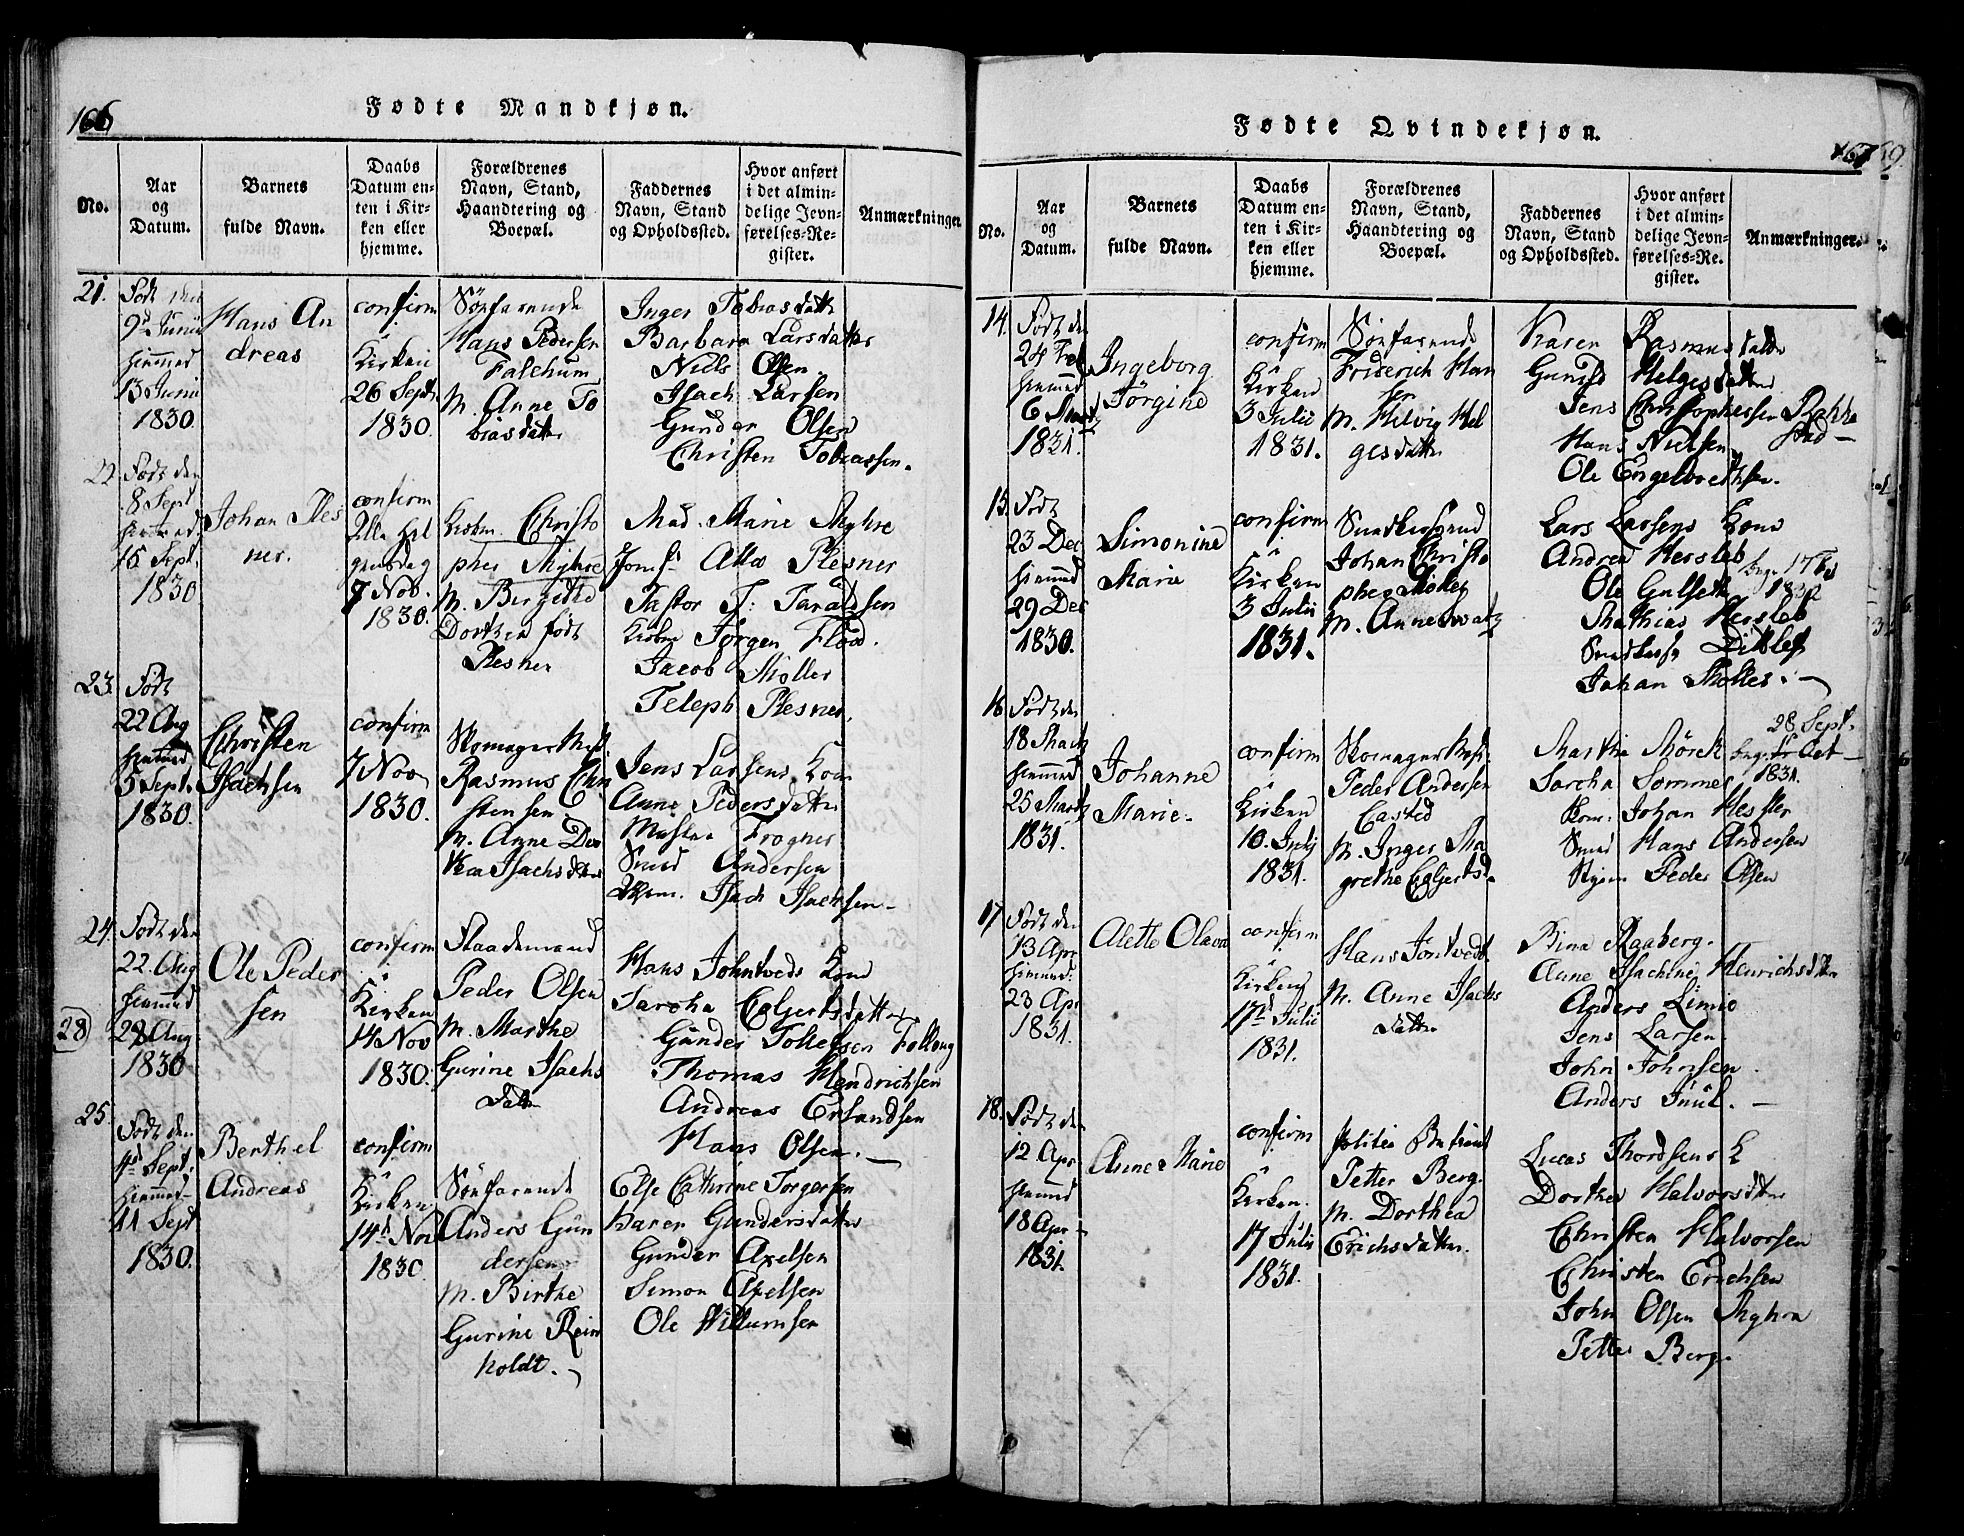 166
Fødte Mandkjøn.
No.
Aar
og
Datum.
Barnets
fulde Navn.
Daabs
Datum en-
ten i Kir-
ken eller
hjemme.
Forældrenes
Navn, Stand,
Haandtering og
Boepæl.
Faddernes
Navn, Stand
og Opholdssted.
Hvor anført
i det almin-
delige Jevn-
førelses-Re-
gister.
Anmærkninger.
21.
Født den
9d Junii
hjemmed
13 Junii
1830
Hans An
dreas
confirm
i
Kirken
26 Septr
1830.
Søefarende
Hans Pedersen
Falchum
M. Anne To
biasdatter
Inger Tobiasdatter
Barbara Larsdatter
Niels Olsen
Isach Larsen
Gunder Olsen
Christen Tobiassen.
22
Født den
8 Sept
hjemmed
15 Sept.
1830
Johan Ples
ner.
confirm
Alle Hel
gensdag
7 Nov.
1830.
Kiøbm. Christo
pher Myhre
M. Birgitte
Dorthea født
Plesner
Mad. Marie Myhre
Jomf. Plesner
Pastor T: Taraldsen
Kiøbm Jørgen Flood.
Jacob Møller
Teleph Plesner.
23.
Født
22 Aug
hjemmed
5 Sept.
1830
Christen
Isachsen
confirm
7 Nov
1830.
Skomager Mest.
Rasmus Chri
stensen
M. Anne Do
thea Isachsdatter
Jens Larsens Kone
Anne Pedersdatter
Frogner
Smed Andersen
Isach Isachsen
24.
Født den
22 Aug
hjemmed
29 Aug
1830
28
Ole Peder
sen
confirm
i
Kirken
14 Nov
1830.
Peder Olsen
M. Marthe
Gurine Isachs
datter
Hans Johntveds Kone
Sarcha Egljertsdatter
Gunder Tollefsen Follaug
Thomas Hendrichsen
Andreas Erlandsen
Hans Olsen.
25.
Født den
4d Sept.
hjemmed
11 Sept
1830.
Berthel
Andreas
confirm
i
Kirken
14d Nov
1830.
Søefarende
Anders Gun
dersen
M. Birthe
Gurine Rein
holdt.
Else Cathrine Torgersen
Karen Gundersdatter
Gunder Axelsen
Simon Axelsen
Ole Willumsen
Fødte Qvindekjøn.
167
No.
Aar
og
Datum.
Barnets
fulde Navn.
Daabs
Datum en-
ten i Kir-
ken eller
hjemme.
Forældrenes
Navn, Stand,
Haandtering og
Boepæl.
Faddernes
Navn, Stand
og Opholdssted.
Hvor anført
i det almin-
delige Jevn-
førelses-Re-
gister.
Anmærkninger.
14.
Født den
24 Feb
hjemmed
6 Martz
1831.
Ingeborg
Jørgine
confirm
i
Kirken
3 Julii
1831.
Søefarende
Friderich Han
sen
M. Helvig Hel
gesdatter
Karen Rasmusdatter
Gunild Helgesdatter
Jens Christophersen Rekke
sted
Hans Nielsen
Ole Engelbrethsen.
15.
Født
23 Dec
hjemmed
29 Dec
1830.
Simonine
Marie
confirm
i
Kirken
3 Julii
1831.
Smedkersvend
Johan Christo
pher Møller
M. Anne
Lars Larsens Kone
Andrea Hersleb
Ole Gulseth
Mathias Hersleb
Ditlef
Johan Møller.
1832
16
Født den
18 Martz
hjemmed
25 Martz
1831.
Johanne
Marie.
confirm
i
Kirken
10. Julij
1831.
Skomager Mest:
Peder Andersen
Casted
M. Inger Ma
grethe Egljertsd.
Marthe Mørch
Sarcha Sommer
Johan Hesler
Smed Hans Andersen
Peder Olsen
28 Sept.
1831
17
Født den
13 Apr
hjemmed:
23 Apr
1831.
Alette Olava
confirm
i
Kirken
17d Julii
1831.
Hans Jontvedt
M. Anne Isachs
datter
Bina Raaberg.
Anne Isachine Henrichsdatter
Anders Limie
Jens Larsen.
John Johnsen.
Anders Juul.
18.
Født den
12 Apr
hjemmed
18 Apr
1831.
Anne Marie
confirm
i
Kirken.
17 Julii
1831.
Politie Betient
Petter Berg.
M. Dorthea
Erichsdatter.
Lucas Thordsens K
Dorthea Halvorsdatter
Christen Halvorsen
Christen Erichsen
John Olsen Myhra
Petter Berg.